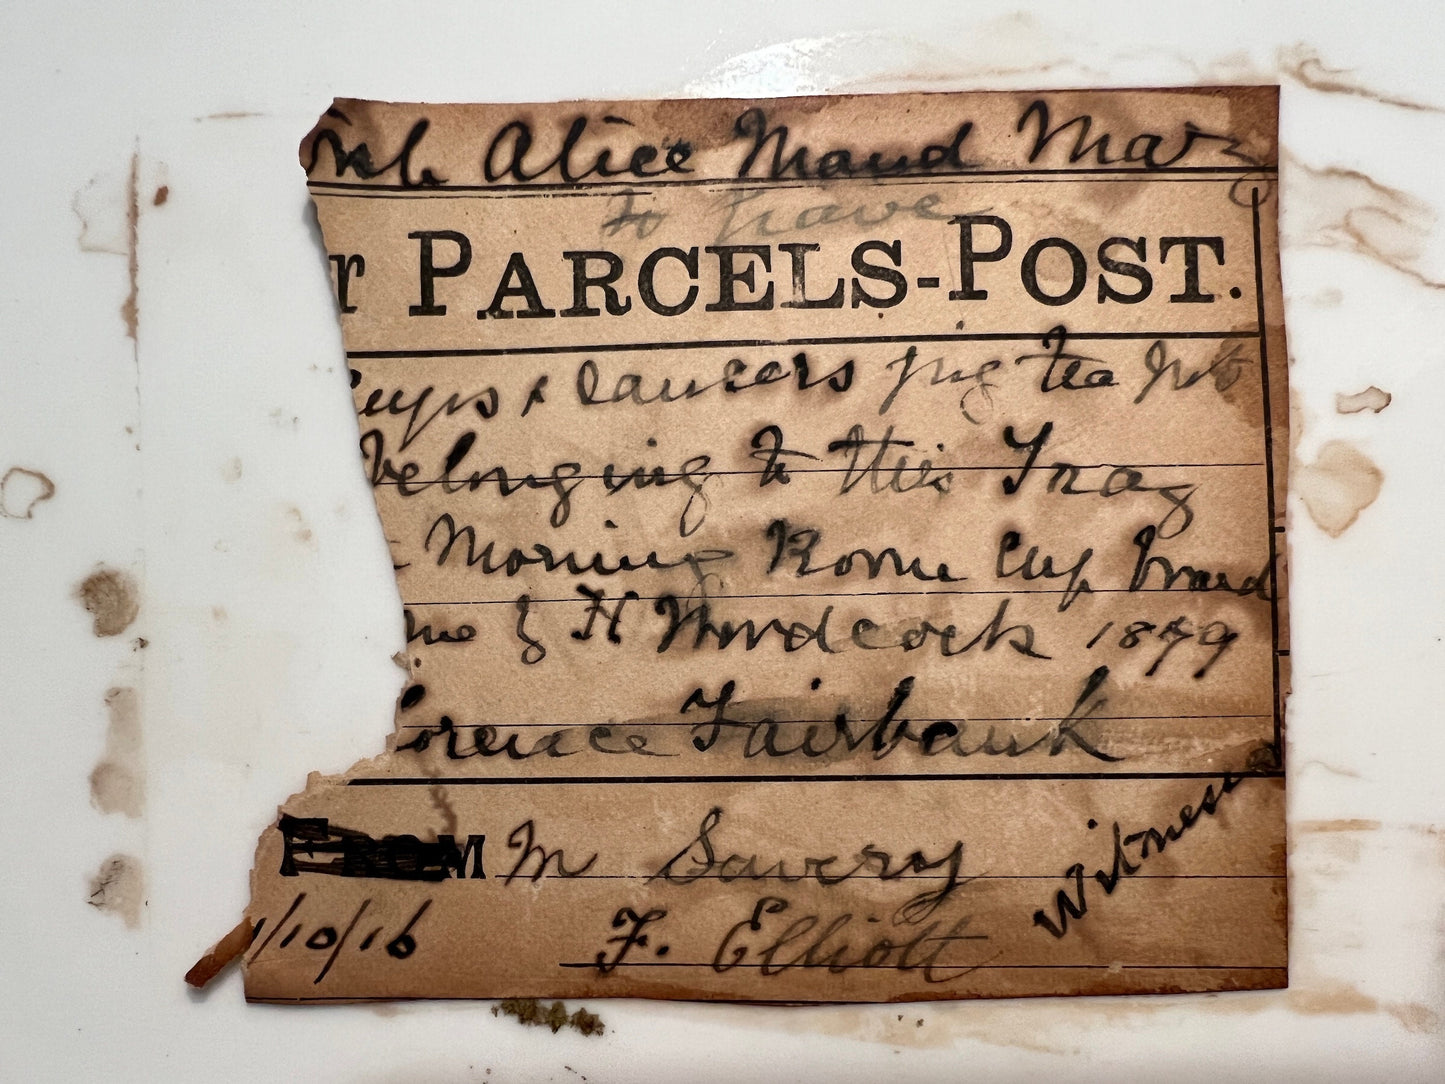 Alice Maud Mary
to have
r PARCELS-POST.
Cups & Saucers jug tea pot
belonging to this Tray
Morning Room Cup board
me by H Murdcock 1879
lorence Fairbank
FROM M Savery
Witness
1/10/16 F. Elliott